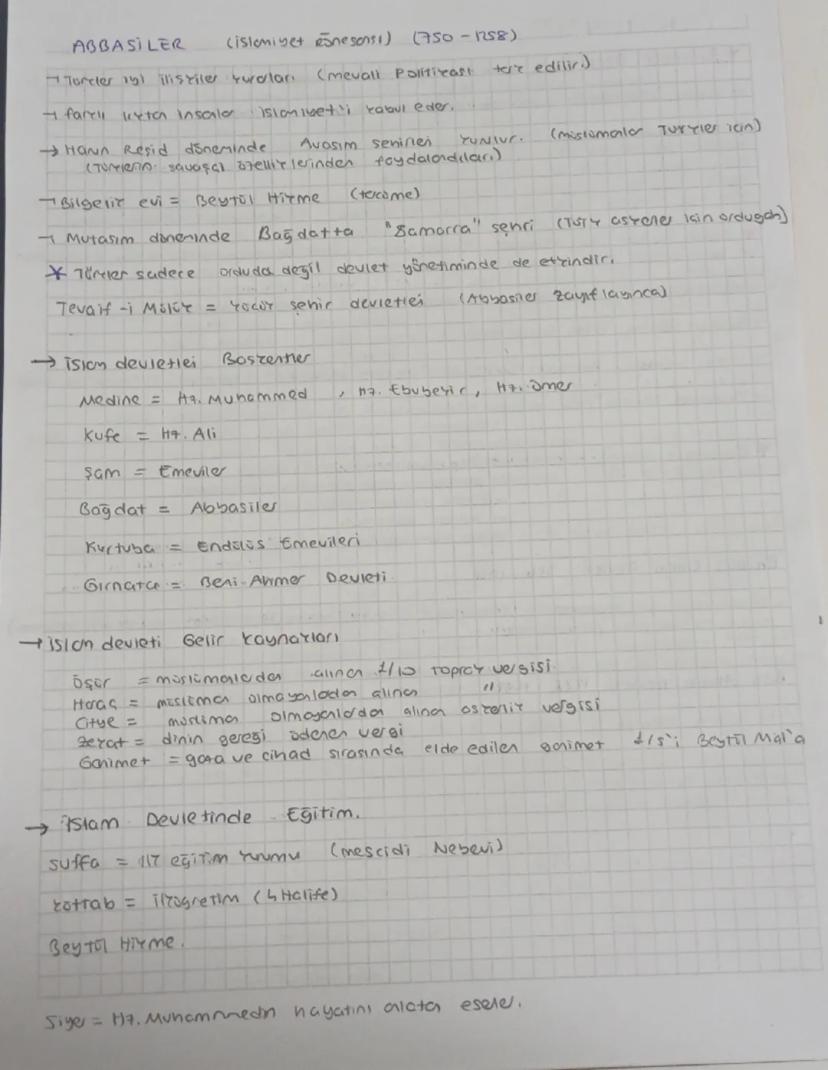 ABBASİLER (islamiyet Rönesansı) (750 - 1258)
→ Türkler iyi ilişkiler kurdular. (mevali Politikası terk edilir.)
→ farklı ırktan insanlar islamiyet'i kabul eder.
→ Harun Reşid döneminde Avasım şehirleri kurulur. (müslümanlar Türkler için)
(Türklerin savaşçı özelliklerinden faydalandılar.)
→ Bilgelik evi = Beytül Hikme (tercüme)
→ Mutasım döneminde Bağdatta "Samarra" şehri (Türk askerler için ordugah)
* Türkler sadece orduda değil devlet yönetiminde de etkindir.
Tevaif-i Mülük = küçük şehir devletleri (Abbasiler zayıflayınca)
→ islam devletleri Başkentler
Medine = Hz. Muhammed , Hz. Ebubekir , Hz. Ömer
Kufe = Hz. Ali
Şam = Emeviler
Bağdat = Abbasiler
Kurtuba = Endülüs Emevileri
Gırnata = Beni-Ahmer Devleti
→ islam devleti Gelir kaynakları
Öşür = müslümanlardan alınan 1/10 toprak vergisi
Haraç = müslüman olmayanlardan alınan "
Cizye = müslüman olmayanlardan alınan askerlik vergisi
zekat = dinin gereği ödenen vergi
Ganimet = gaza ve cihad sırasında elde edilen ganimet 1/5'i Beytül Mal'a
→ islam Devletinde Eğitim.
Suffa = ilk eğitim kurumu (mescidi Nebevi)
küttab = ilköğretim (4 Halife)
Beytül Hikme.
Siyer = Hz. Muhammedin hayatını anlatan eserler.